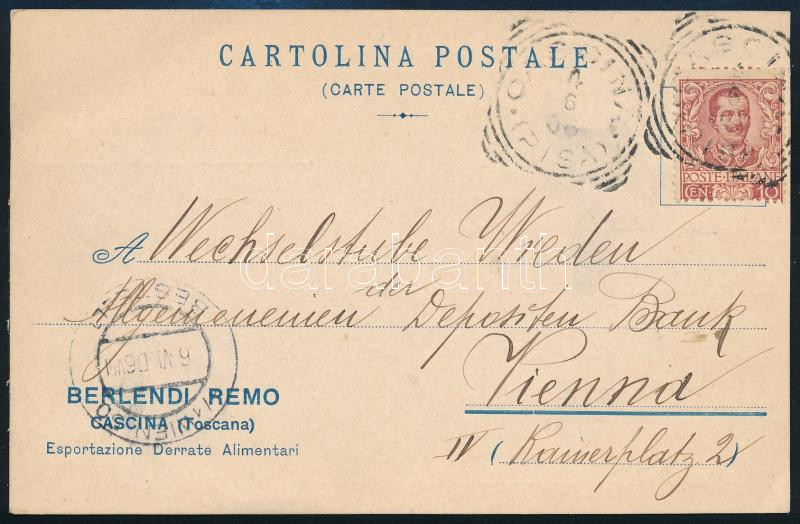 CARTOLINA POSTALE
(CARTE POSTALE)
CASCINA
(PISA)
4 6 06
POSTE ITALIANE
CEN. 10
A Wechselstube Wieden
der
Allgemeinen Depositen Bank
Vienna
IV (Rainerplatz 2)
6 VI 06 VII
WIEN
BERLENDI REMO
CASCINA (Toscana)
Esportazione Derrate Alimentari
darabanth